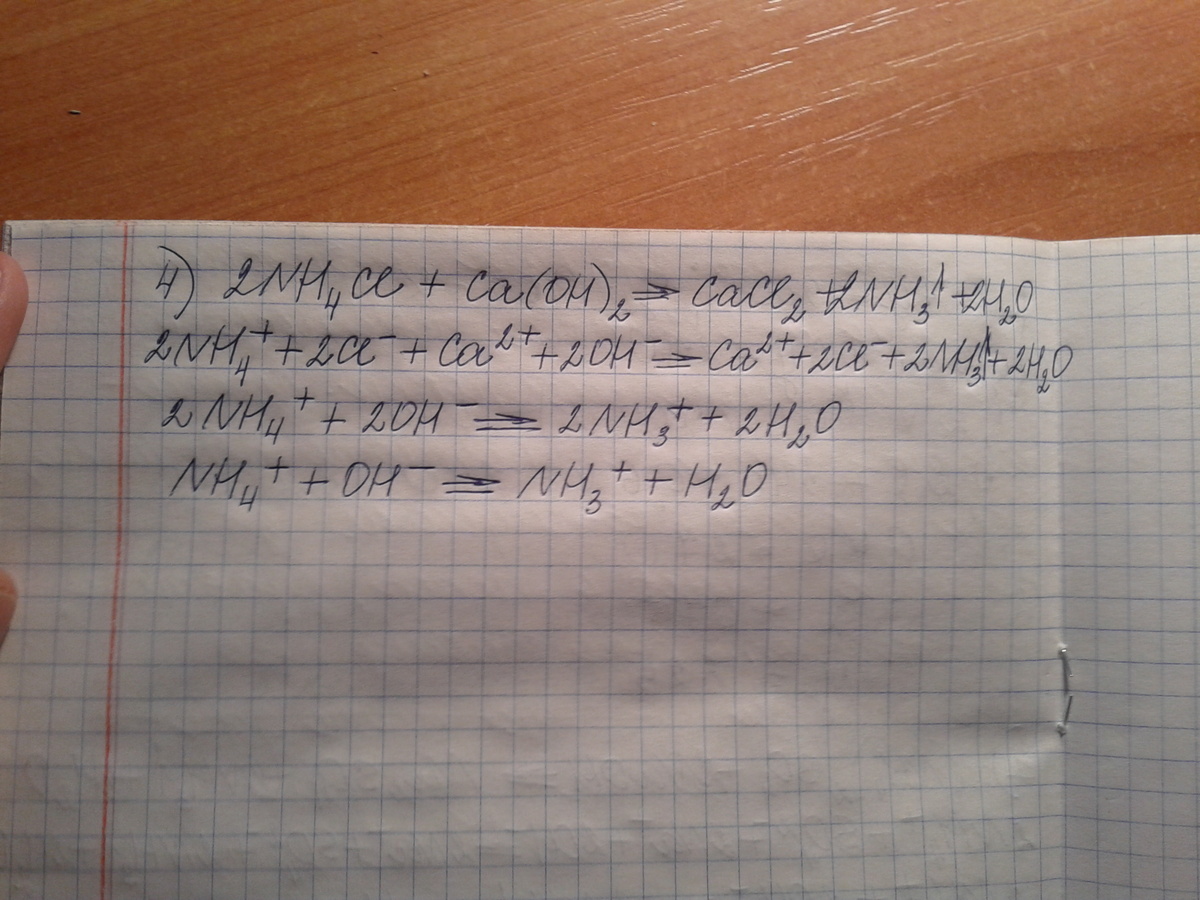 4) 2NH₄Cl + Ca(OH)₂ ⇒ CaCl₂ + 2NH₃↑ + 2H₂O
2NH₄⁺ + 2Cl⁻ + Ca²⁺ + 2OH⁻ ⇒ Ca²⁺ + 2Cl⁻ + 2NH₃↑ + 2H₂O
2NH₄⁺ + 2OH⁻ ⇒ 2NH₃⁺ + 2H₂O
NH₄⁺ + OH⁻ ⇒ NH₃⁺ + H₂O